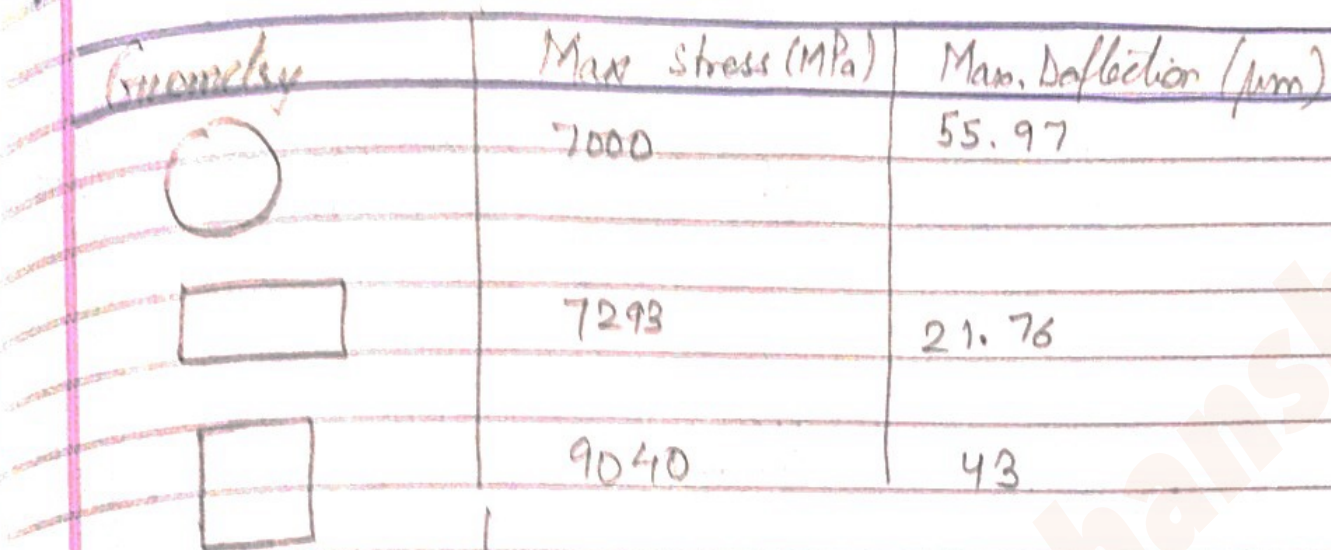 Geometry Max Stress (MPa) Max. Deflection (μm)
7000 55.97
7293 21.76
9040 43